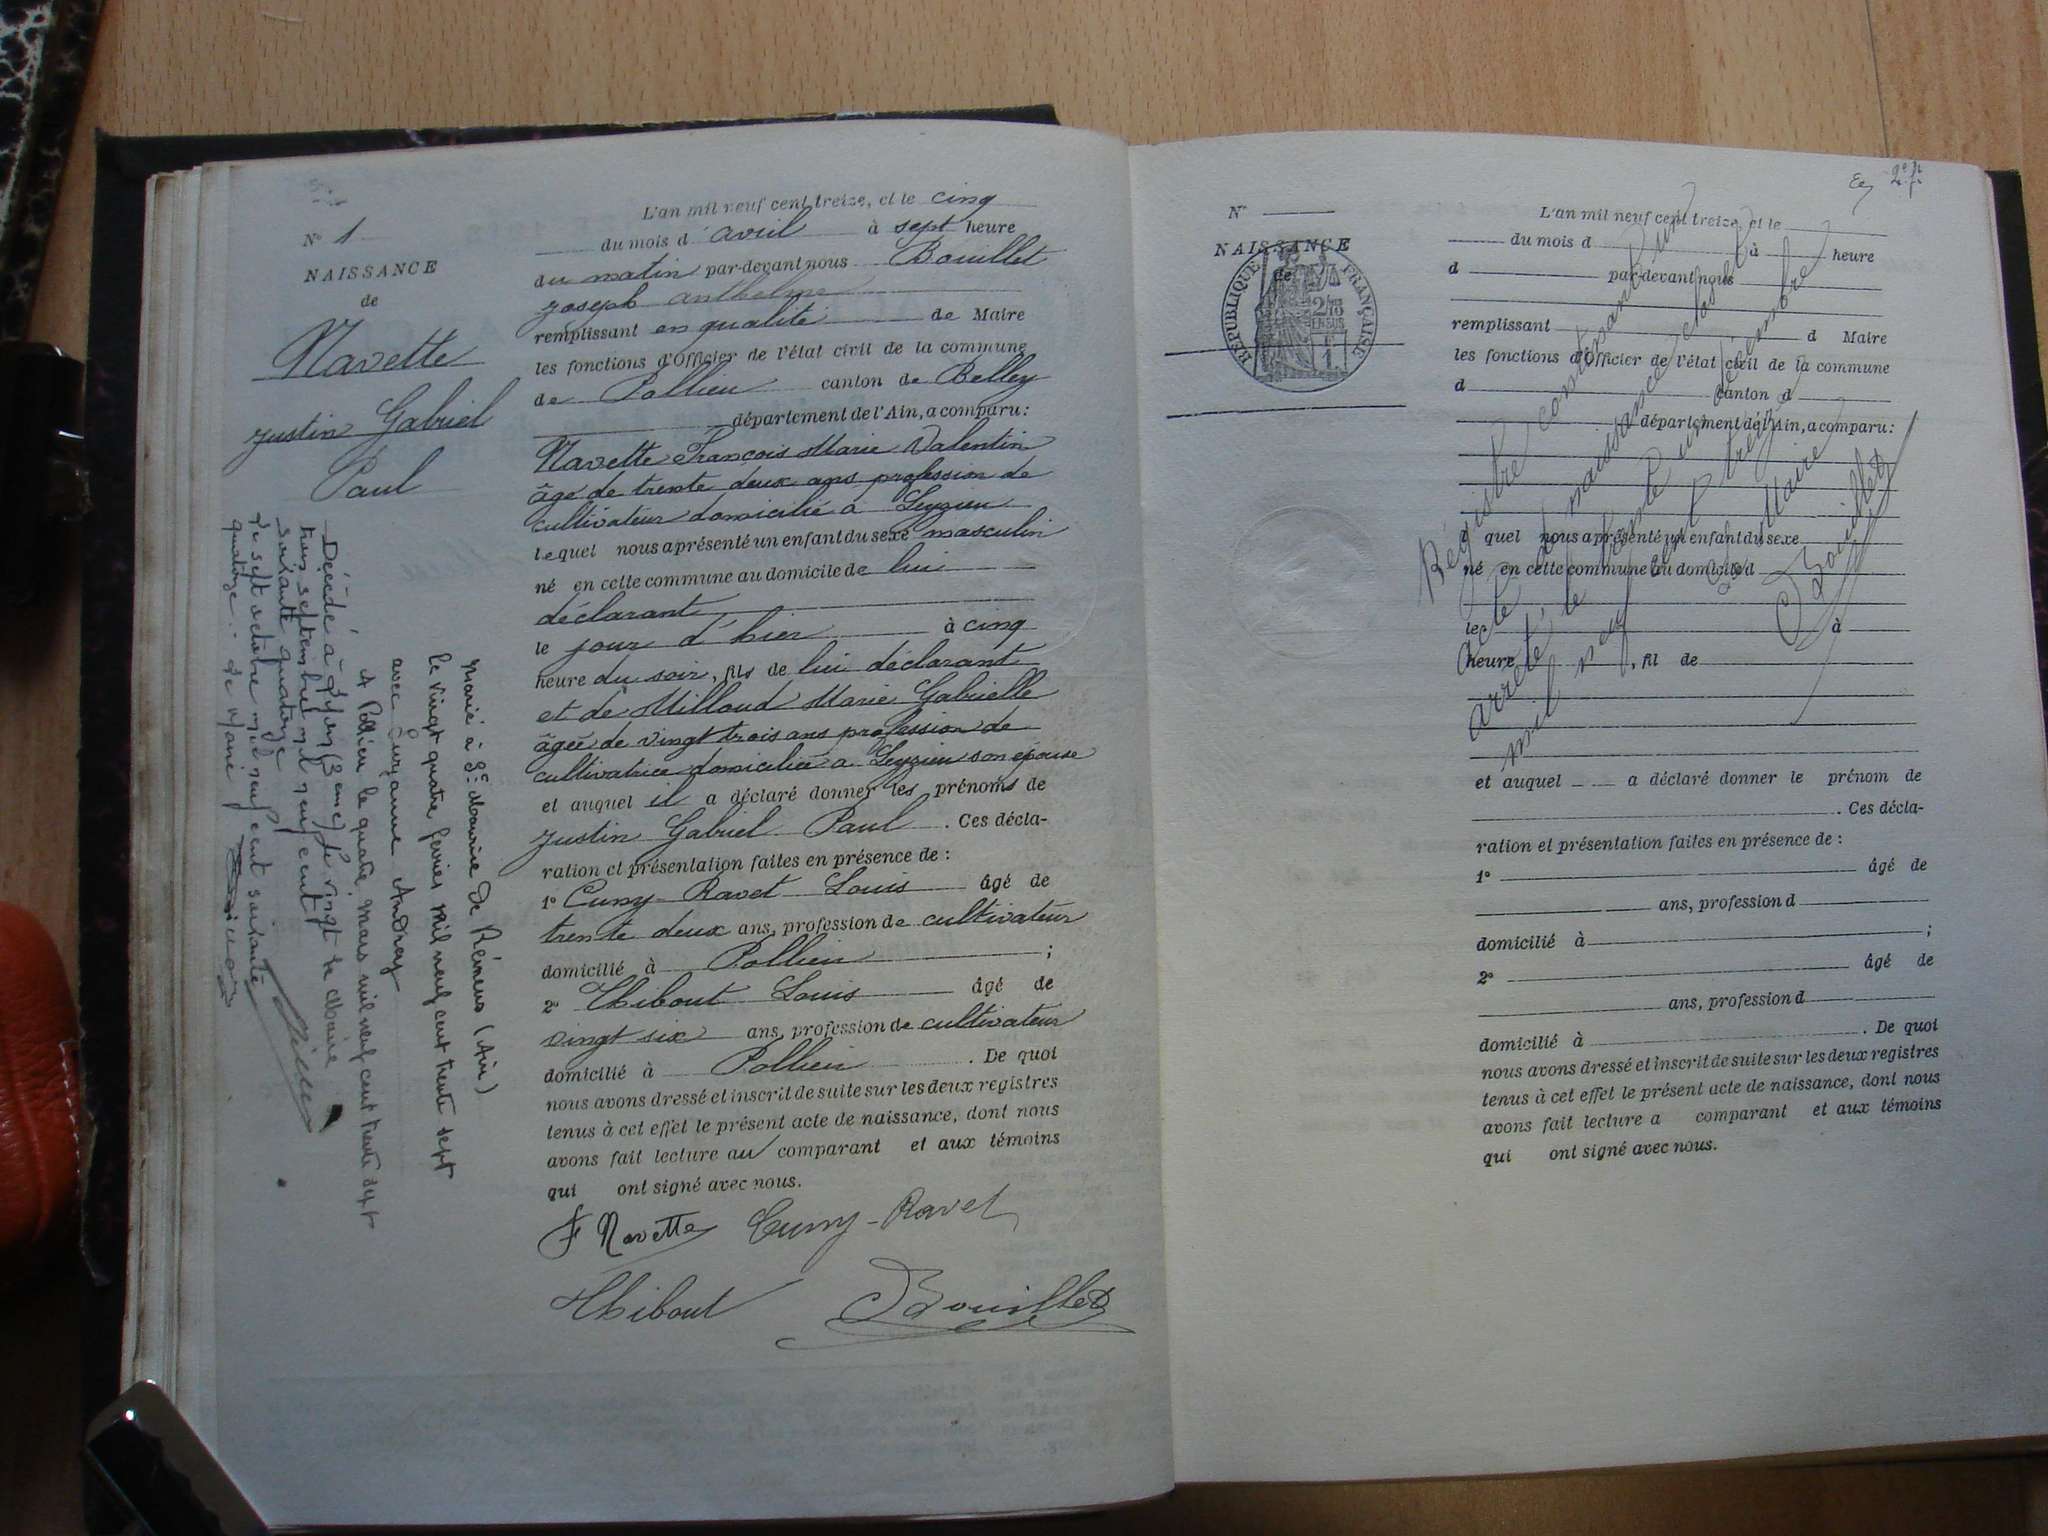 N° 1
NAISSANCE
de
Navette
Justin Gabriel
Paul
L'an mil neuf cent treize, et le cinq
du mois d'avril à sept heure
du matin par-devant nous Bouillet
Joseph Anthelme
remplissant en qualité de Maire
les fonctions d'Officier de l'état civil de la commune
de Pollieu canton de Belley
département de l'Ain, a comparu :
Navette François Marie Valentin
âgé de trente deux ans profession de
cultivateur domicilié à Leyzieu
lequel nous a présenté un enfant du sexe masculin
né en cette commune au domicile de lui
déclarant
le jour d'hier à cinq
heure du soir, fils de lui déclarant
et de Millaud Marie Gabrielle
âgée de vingt trois ans profession de
cultivatrice domiciliée à Leyzieu son épouse
et auquel il a déclaré donner les prénoms de
Justin Gabriel Paul. Ces décla-
ration et présentation faites en présence de :
1° Cuny-Ravet Louis âgé de
trente deux ans, profession de cultivateur
domicilié à Pollieu ;
2° Thibout Louis âgé de
vingt six ans, profession de cultivateur
domicilié à Pollieu. De quoi
nous avons dressé et inscrit de suite sur les deux registres
tenus à cet effet le présent acte de naissance, dont nous
avons fait lecture au comparant et aux témoins
qui ont signé avec nous.
F Navette Cuny-Ravet
Thibout Bouillet
Marié à St Maurice de Rémens (Ain)
le vingt quatre février mil neuf cent trente sept
avec Suzanne Andrey
A Pollieu le quatre mars mil neuf cent trente sept
Décédé à Lyon (3eme) le vingt
trois septembre mil neuf cent
soixante quatorze
Le sept octobre mil neuf cent soixante
quatorze : le Maire
le Maire
N°
NAISSANCE
de
RÉPUBLIQUE FRANÇAISE
L'an mil neuf cent treize, et le
du mois d à heure
d par-devant nous
remplissant d Maire
les fonctions d'Officier de l'état civil de la commune
d canton d
département de l'Ain, a comparu :
l quel nous a présenté un enfant du sexe
né en cette commune au domicile d
le à
heure , fil de
et auquel a déclaré donner le prénom de
. Ces décla-
ration et présentation faites en présence de :
1° âgé de
ans, profession d
domicilié à ;
2° âgé de
ans, profession d
domicilié à . De quoi
nous avons dressé et inscrit de suite sur les deux registres
tenus à cet effet le présent acte de naissance, dont nous
avons fait lecture a comparant et aux témoins
qui ont signé avec nous.
Registre contenant un
acte de naissance clos et
arrêté, le trente un décembre
mil neuf cent treize
Le Maire
Bouillet